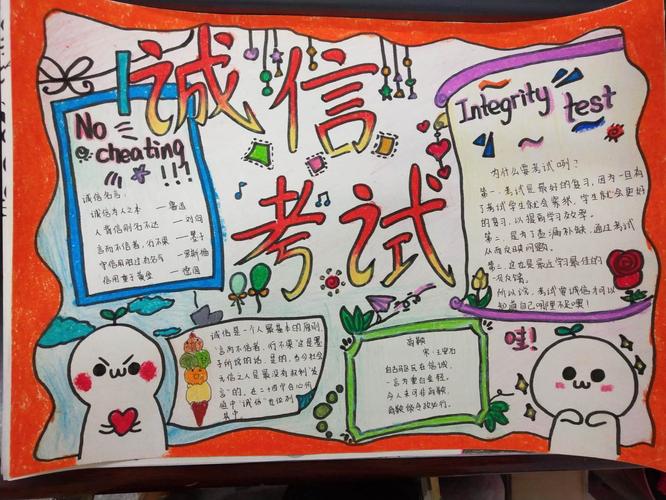 诚信
考试
No
cheating
!!!
诚信名言:
诚信为人之本 —鲁迅
人背信则名不达 —刘向
言而不信者,行不果 —墨子
守信用胜过有名气 —罗斯福
信用重于黄金 —德国
Integrity test
为什么要考试咧?
第一.考试是最好的复习,因为一旦有
了考试学生就会紧张,学生就会更好
的复习,以提高学习效率.
第二.是为了查漏补缺,通过考试
从而发现问题.
第三.这也是最近学习最佳的
一次反馈.
所以说,考试要诚信才可以
知道自己哪里不足噢!
哇!
诚信是一个人最基本的原则
"言而不信者,行不果"这是墨
子所说的话,是的,当今社会
无信之人是最没有权利"发
言"的,
"诚信"也位列
其中.
商鞅
宋·王安石
自古驱民在信诚,
一言为重百金轻.
今人未可非商鞅,
商鞅能令政必行.